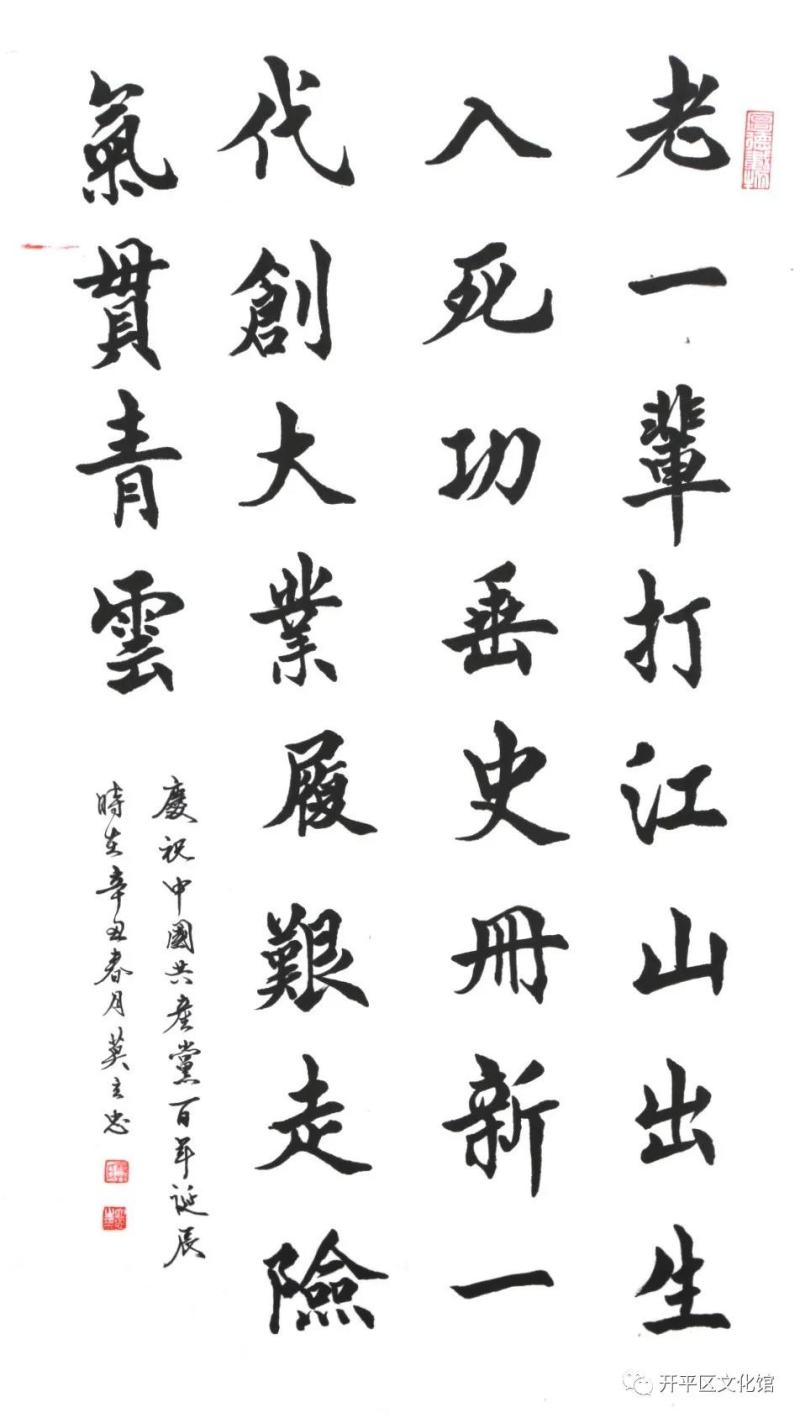 老一輩打江山出生
入死功垂史冊新一
代創大業履艱走險
氣貫青雲
慶祝中國共產黨百年誕辰
時在辛丑春月莫立忠
开平区文化馆